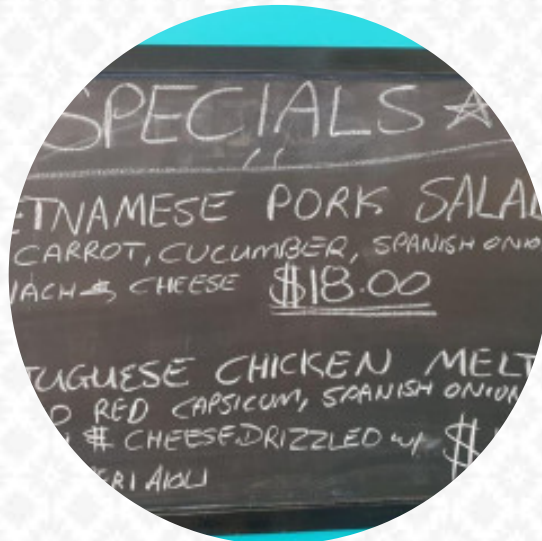 SPECIALS
ETNAMESE PORK SALAD
CARROT, CUCUMBER, SPANISH ONIO
NACH & CHEESE $18.00
TUGUESE CHICKEN MELT
D RED CAPSICUM, SPANISH ONION
& CHEESE DRIZZLED w/ $
ERI AIOLI